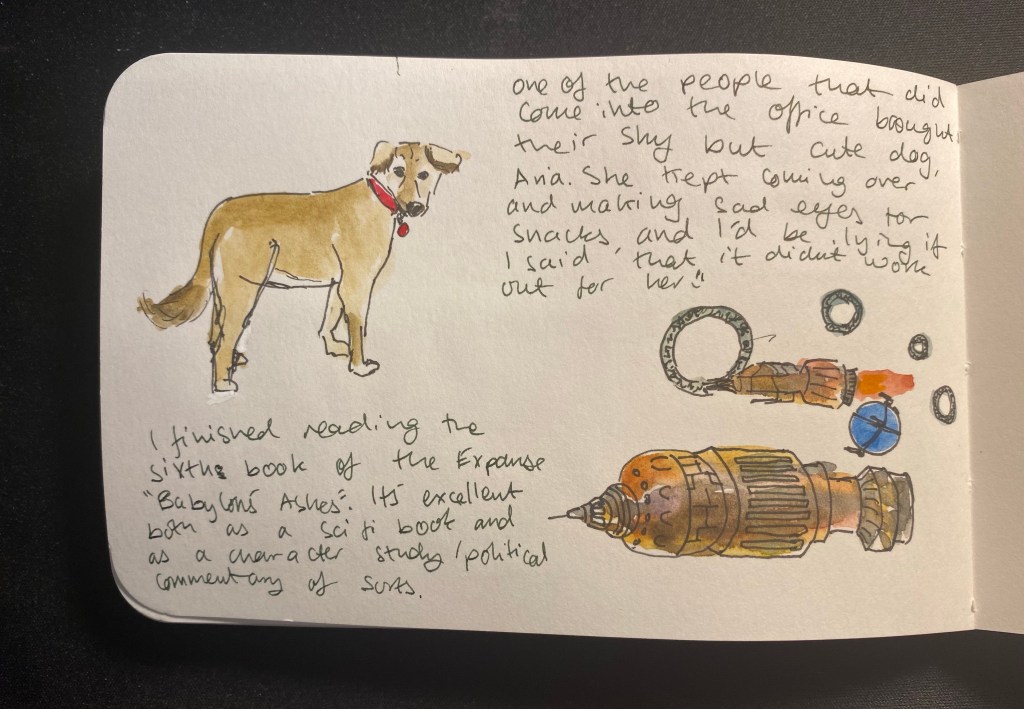 one of the people that did
come into the office brought
their shy but cute dog,
Aria. She kept coming over
and making sad eyes for
snacks, and I'd be lying if
I said that it didn't work
out for her :)
I finished reading the
sixth book of the Expanse
"Babylon's Ashes". It's excellent
both as a sci fi book and
as a character study/political
commentary of sorts.